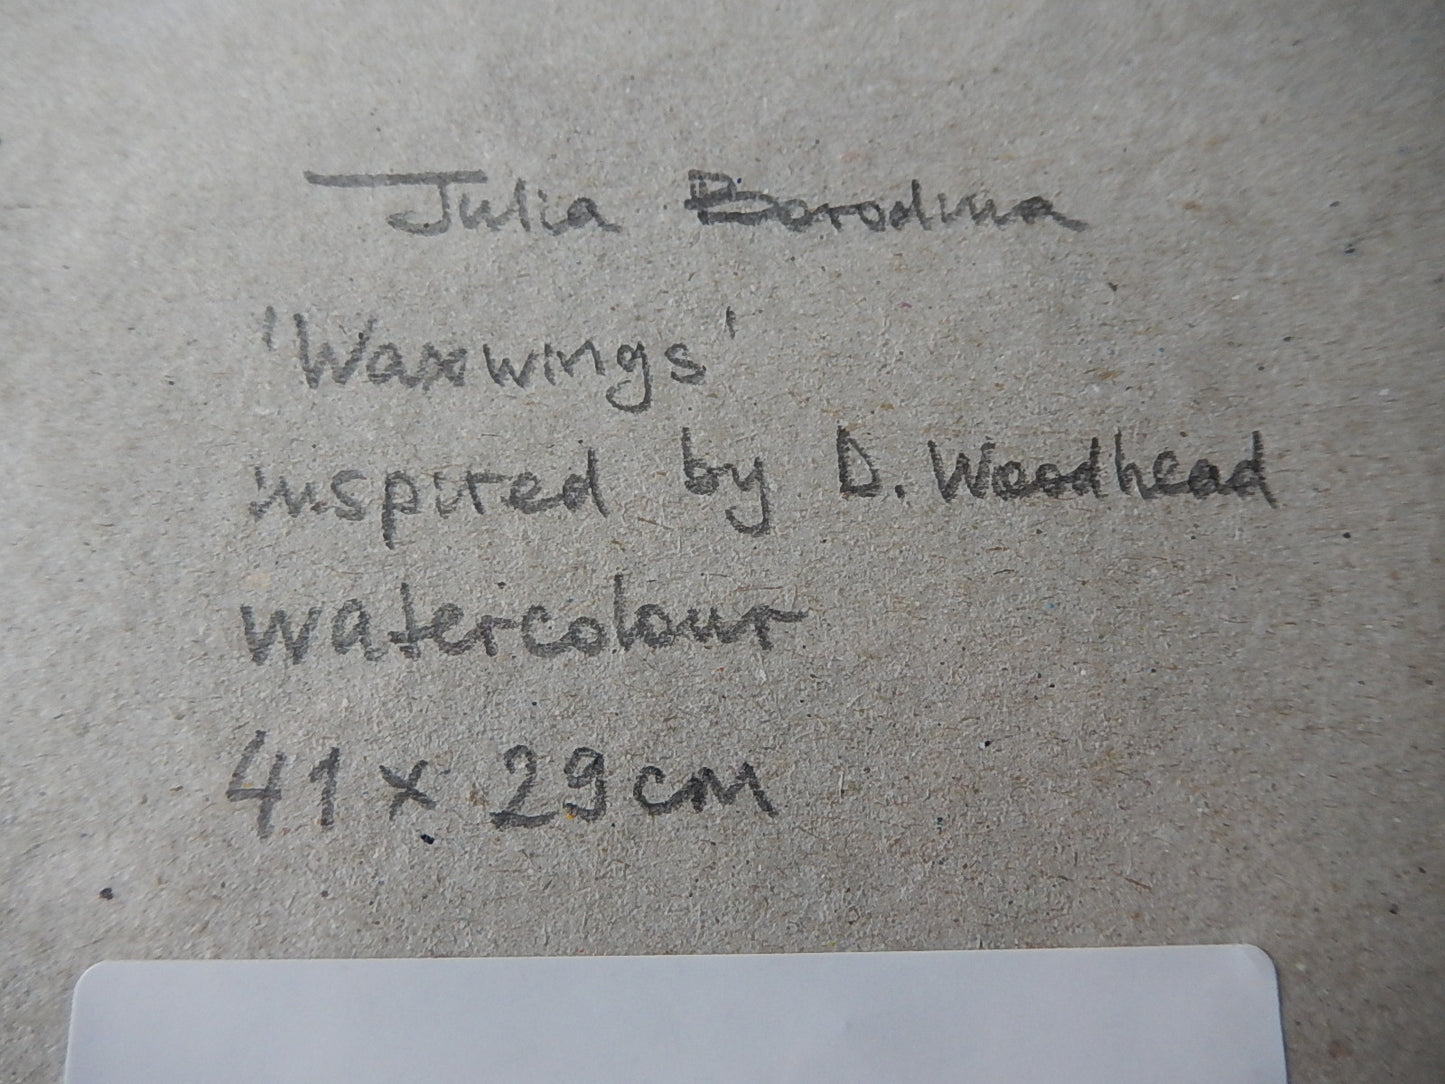 Julia Borodina
'Waxwings'
inspired by D. Woodhead
watercolour
41 x 29 cm